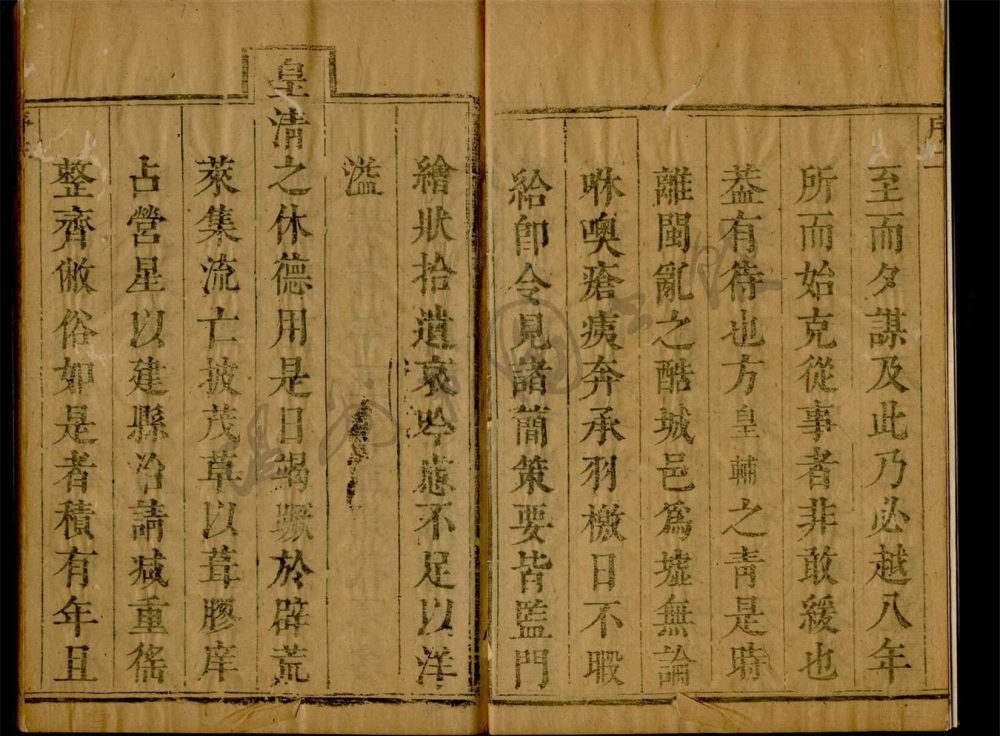 序二
至而夕謀及此乃必越八年
所而始克從事者非敢緩也
葢有待也方皇輔之青是時
離閩亂之酷城邑為墟無論
咻噢瘡痍奔承羽檄日不暇
給卽令見諸簡策要皆監門
繪狀拾遺哀吟應不足以洋
溢
皇清之休德用是日竭蹶於辟荒
萊集流亡披茂草以葺膠庠
占營星以建縣治請减重徭
整齊倣俗如是者積有年且